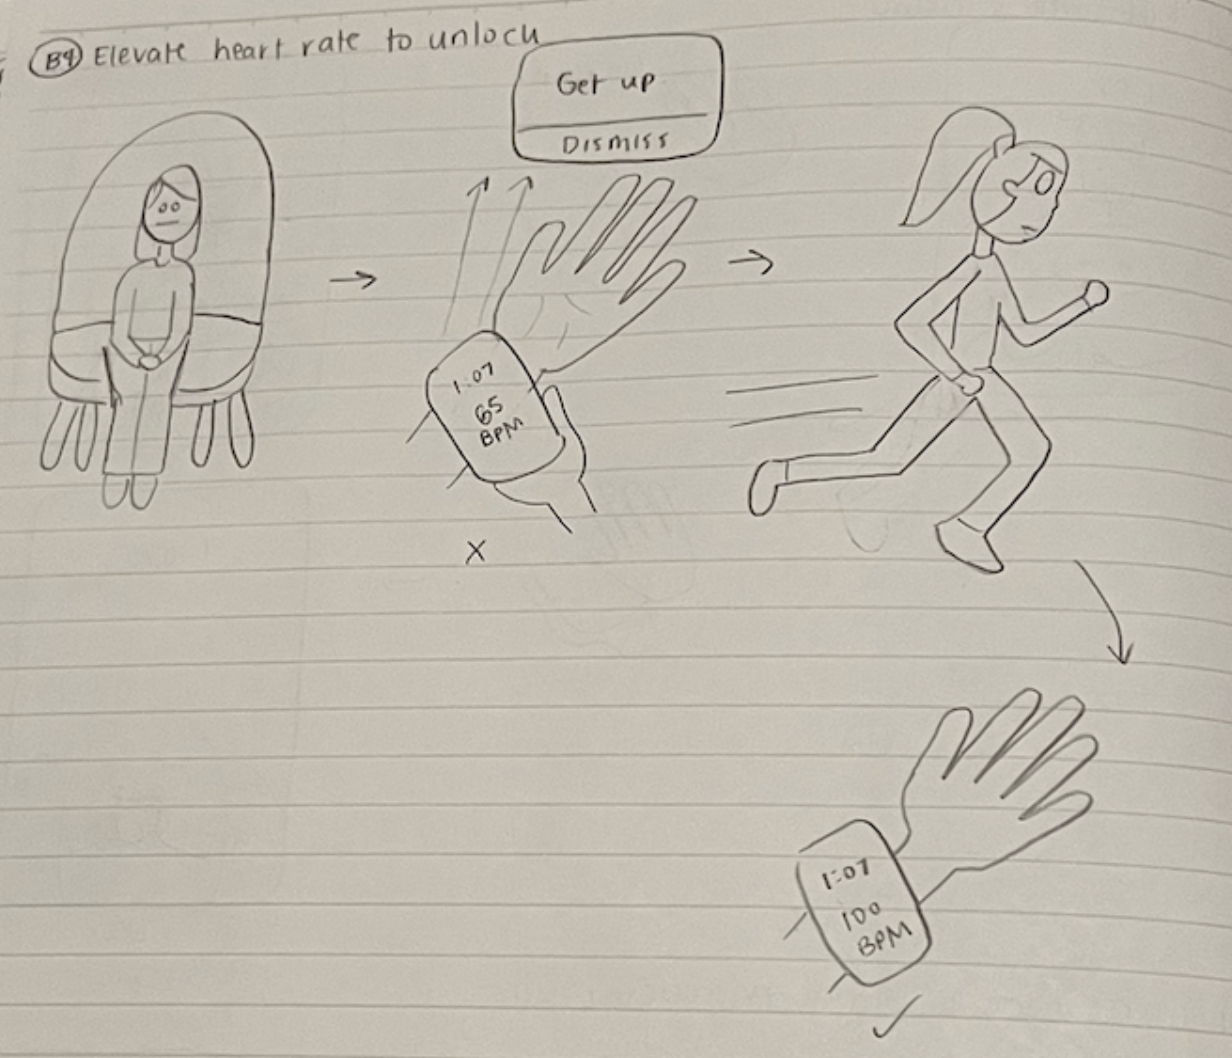 B4 Elevate heart rate to unlock
Get up
Dismiss
1:07
65
BPM
X
1:07
100
BPM